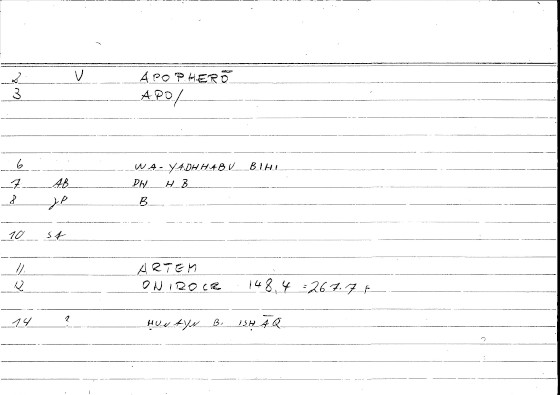 2 V APOPHERŌ
3 APO/
6 WA-YADHHABU BIHI
7 AB DH H B
8 JP B
10 SA
11 ARTEM
12 ONIROCR 148,4 = 267.7 F
14 ? ḤUNAYN B. ISḤĀQ